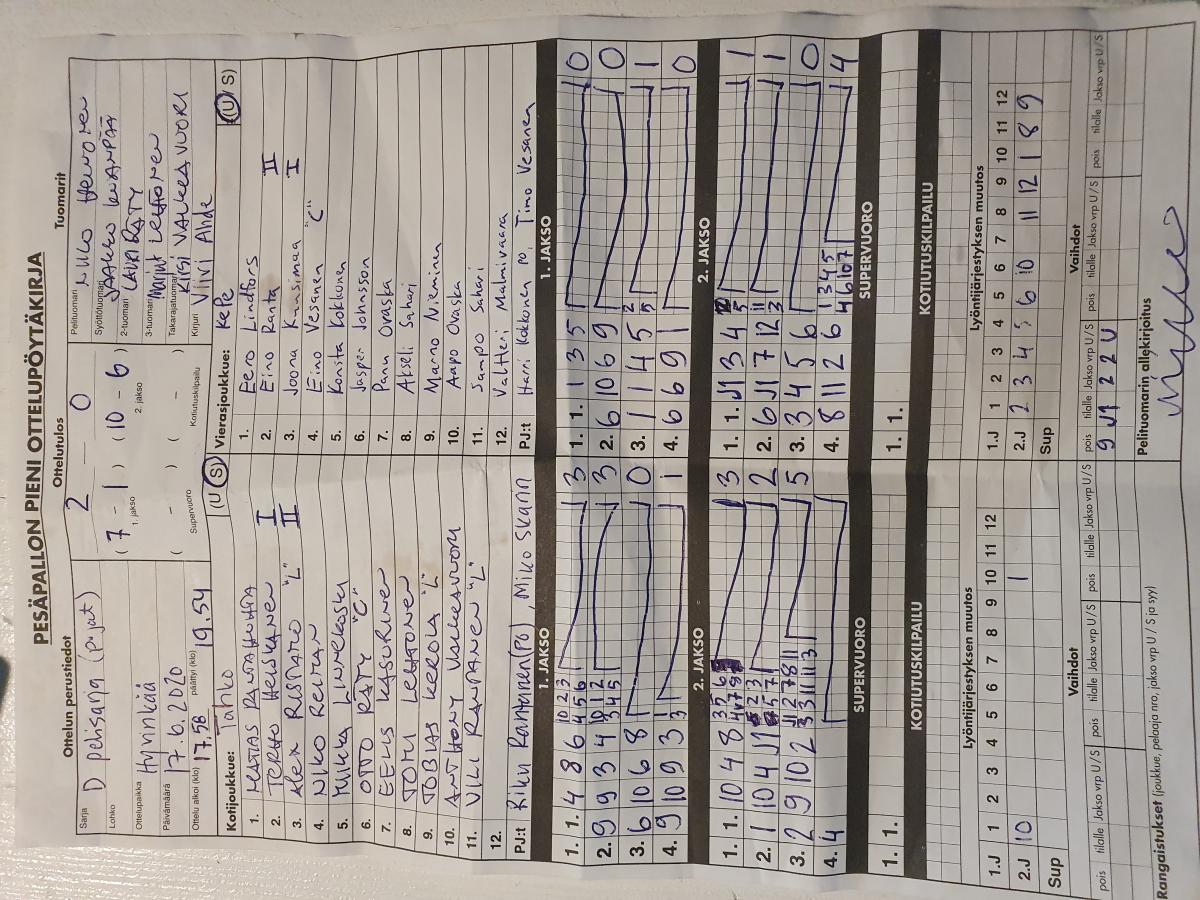 PESÄPALLON PIENI OTTELUPÖYTÄKIRJA
Ottelun perustiedot
Sarja D pelisarja (pojat)
Lohko
Ottelupaikka Hyvinkää
Päivämäärä 17.6.2020
Ottelu alkoi (klo) 17.58 päättyi (klo) 19.54
Ottelutulos
2 0
( 7 - 1 ) ( 10 - 6 )
1. jakso 2. jakso
( - ) ( - )
Supervuoro Kotiutuskilpailu
Tuomarit
Pelituomari
Syöttötuomari JAAKKO
2-tuomari LAURI RÄTY
3-tuomari Marjut Lehtonen
Takarajatuomari KIRSI VALKEAVUORI
Kirjuri Viivi Ahde
Kotijoukkue: Tahko (U S)
1.
2. TERHO HEISKANEN I
3. Alex RUSPATRO "L" II
4. NIKO REIMAN
5. Miikka LINNEKOSKI
6. OTTO RÄTY "C"
7. EELIS KASURINEN
8. TOMI LEHTONEN
9. TOBIAS KEROLA "L"
10. ANTHONY VALKEAVUORI
11. VILI RANTANEN "L"
12.
PJ:t Riku Rantanen (PÖ), Miko Skarin
Vierasjoukkue: KePe (U S)
1. Eero Lindfors
2. Eino Ranta II
3. Joona Kansimaa I
4. Eino Vesanen "C"
5. Konsta Kokkonen
6. Jasper Johnsson
7. Panu Ovaska
8. Akseli Sahari
9. Manno Nieminen
10. Aapo Ovaska
11. Sampo Sahari
12. Valtteri Malmivaara
PJ:t Harri Kokkonen po, Timo Vesanen
1. JAKSO
1. 1. 4 8 6 3
2. 9 9 3 4 3
3. 6 10 6 8 0
4. 9 10 9 3 1
1. JAKSO
1. 1. 1 3 5 0
2. 6 10 6 9 0
3. 1 1 4 5 1
4. 6 6 9 1 0
2. JAKSO
1. 1. 10 4 8 3
2. 1 10 4 J1 2
3. 2 9 10 2 5
4. 4
2. JAKSO
1. 1. J1 3 4 1
2. 6 J1 7 12 1
3. 3 4 5 6 0
4. 8 11 2 6 4
SUPERVUORO
1. 1.
SUPERVUORO
1. 1.
KOTIUTUSKILPAILU
KOTIUTUSKILPAILU
Lyöntijärjestyksen muutos
1.J 1 2 3 4 5 6 7 8 9 10 11 12
2.J 10 1
Sup
Lyöntijärjestyksen muutos
1.J 1 2 3 4 5 6 7 8 9 10 11 12
2.J 2 3 4 5 6 10 11 12 1 8 9
Sup
Vaihdot
pois tilalle Jakso vrp U/S pois tilalle Jakso vrp U/S pois tilalle Jakso vrp U/S
Vaihdot
pois tilalle Jakso vrp U/S pois tilalle Jakso vrp U/S pois tilalle Jakso vrp U/S
9 J1 2 2 U
Rangaistukset (joukkue, pelaaja nro, jakso vrp U / S ja syy)
Pelituomarin allekirjoitus